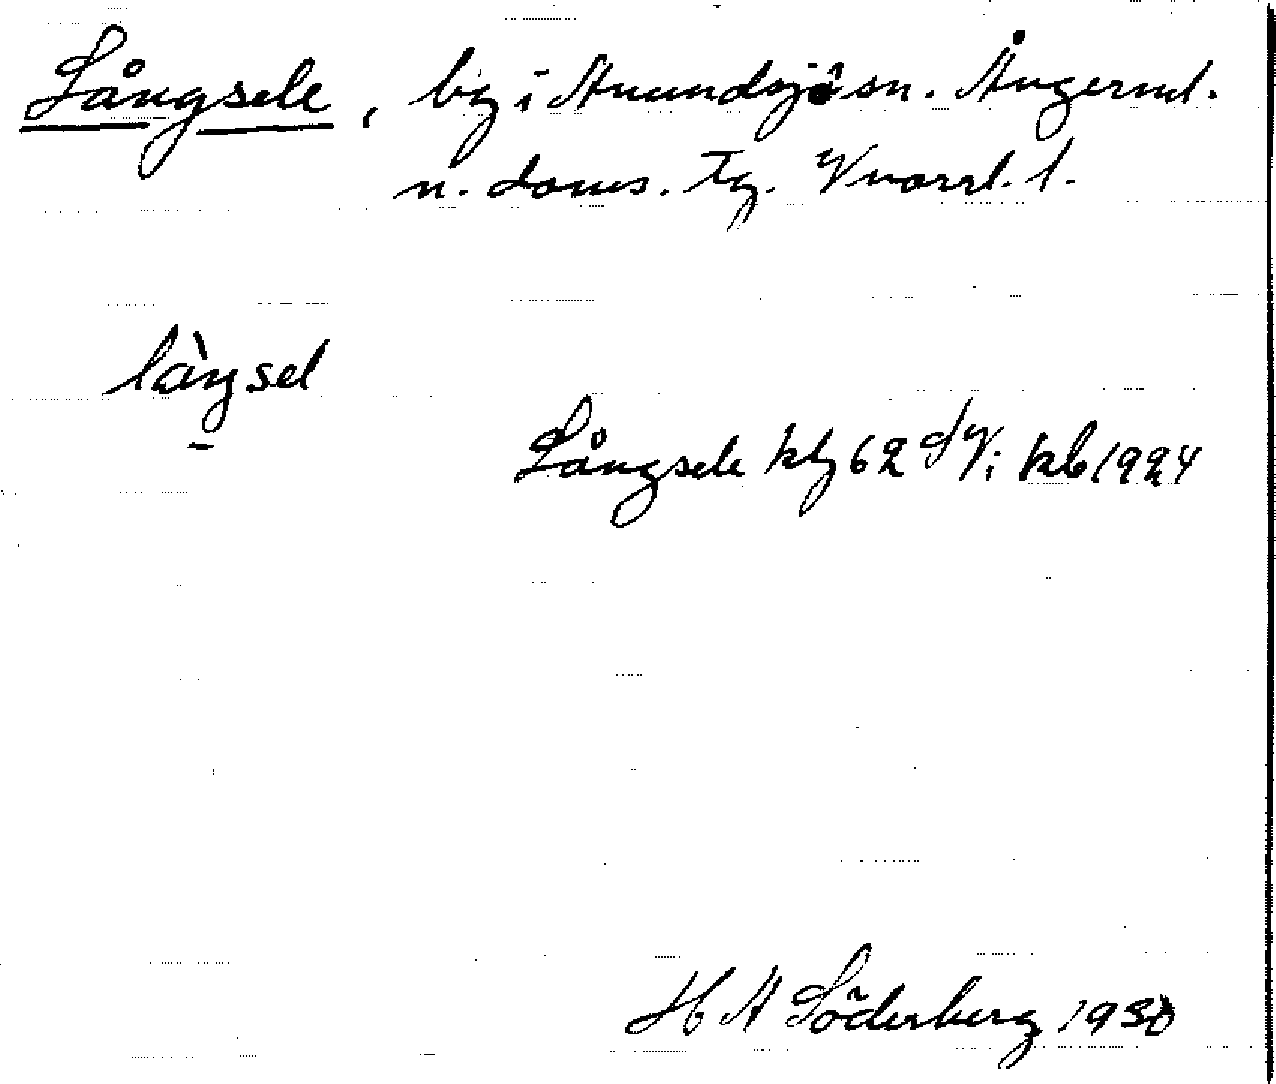 Långsele, by i Anundsjö sn. Ångerml.
n. doms. tg. Vnorrl. l.
làŋsel
Långsele kbg 62 i kb 1924
H A Söderberg 1930